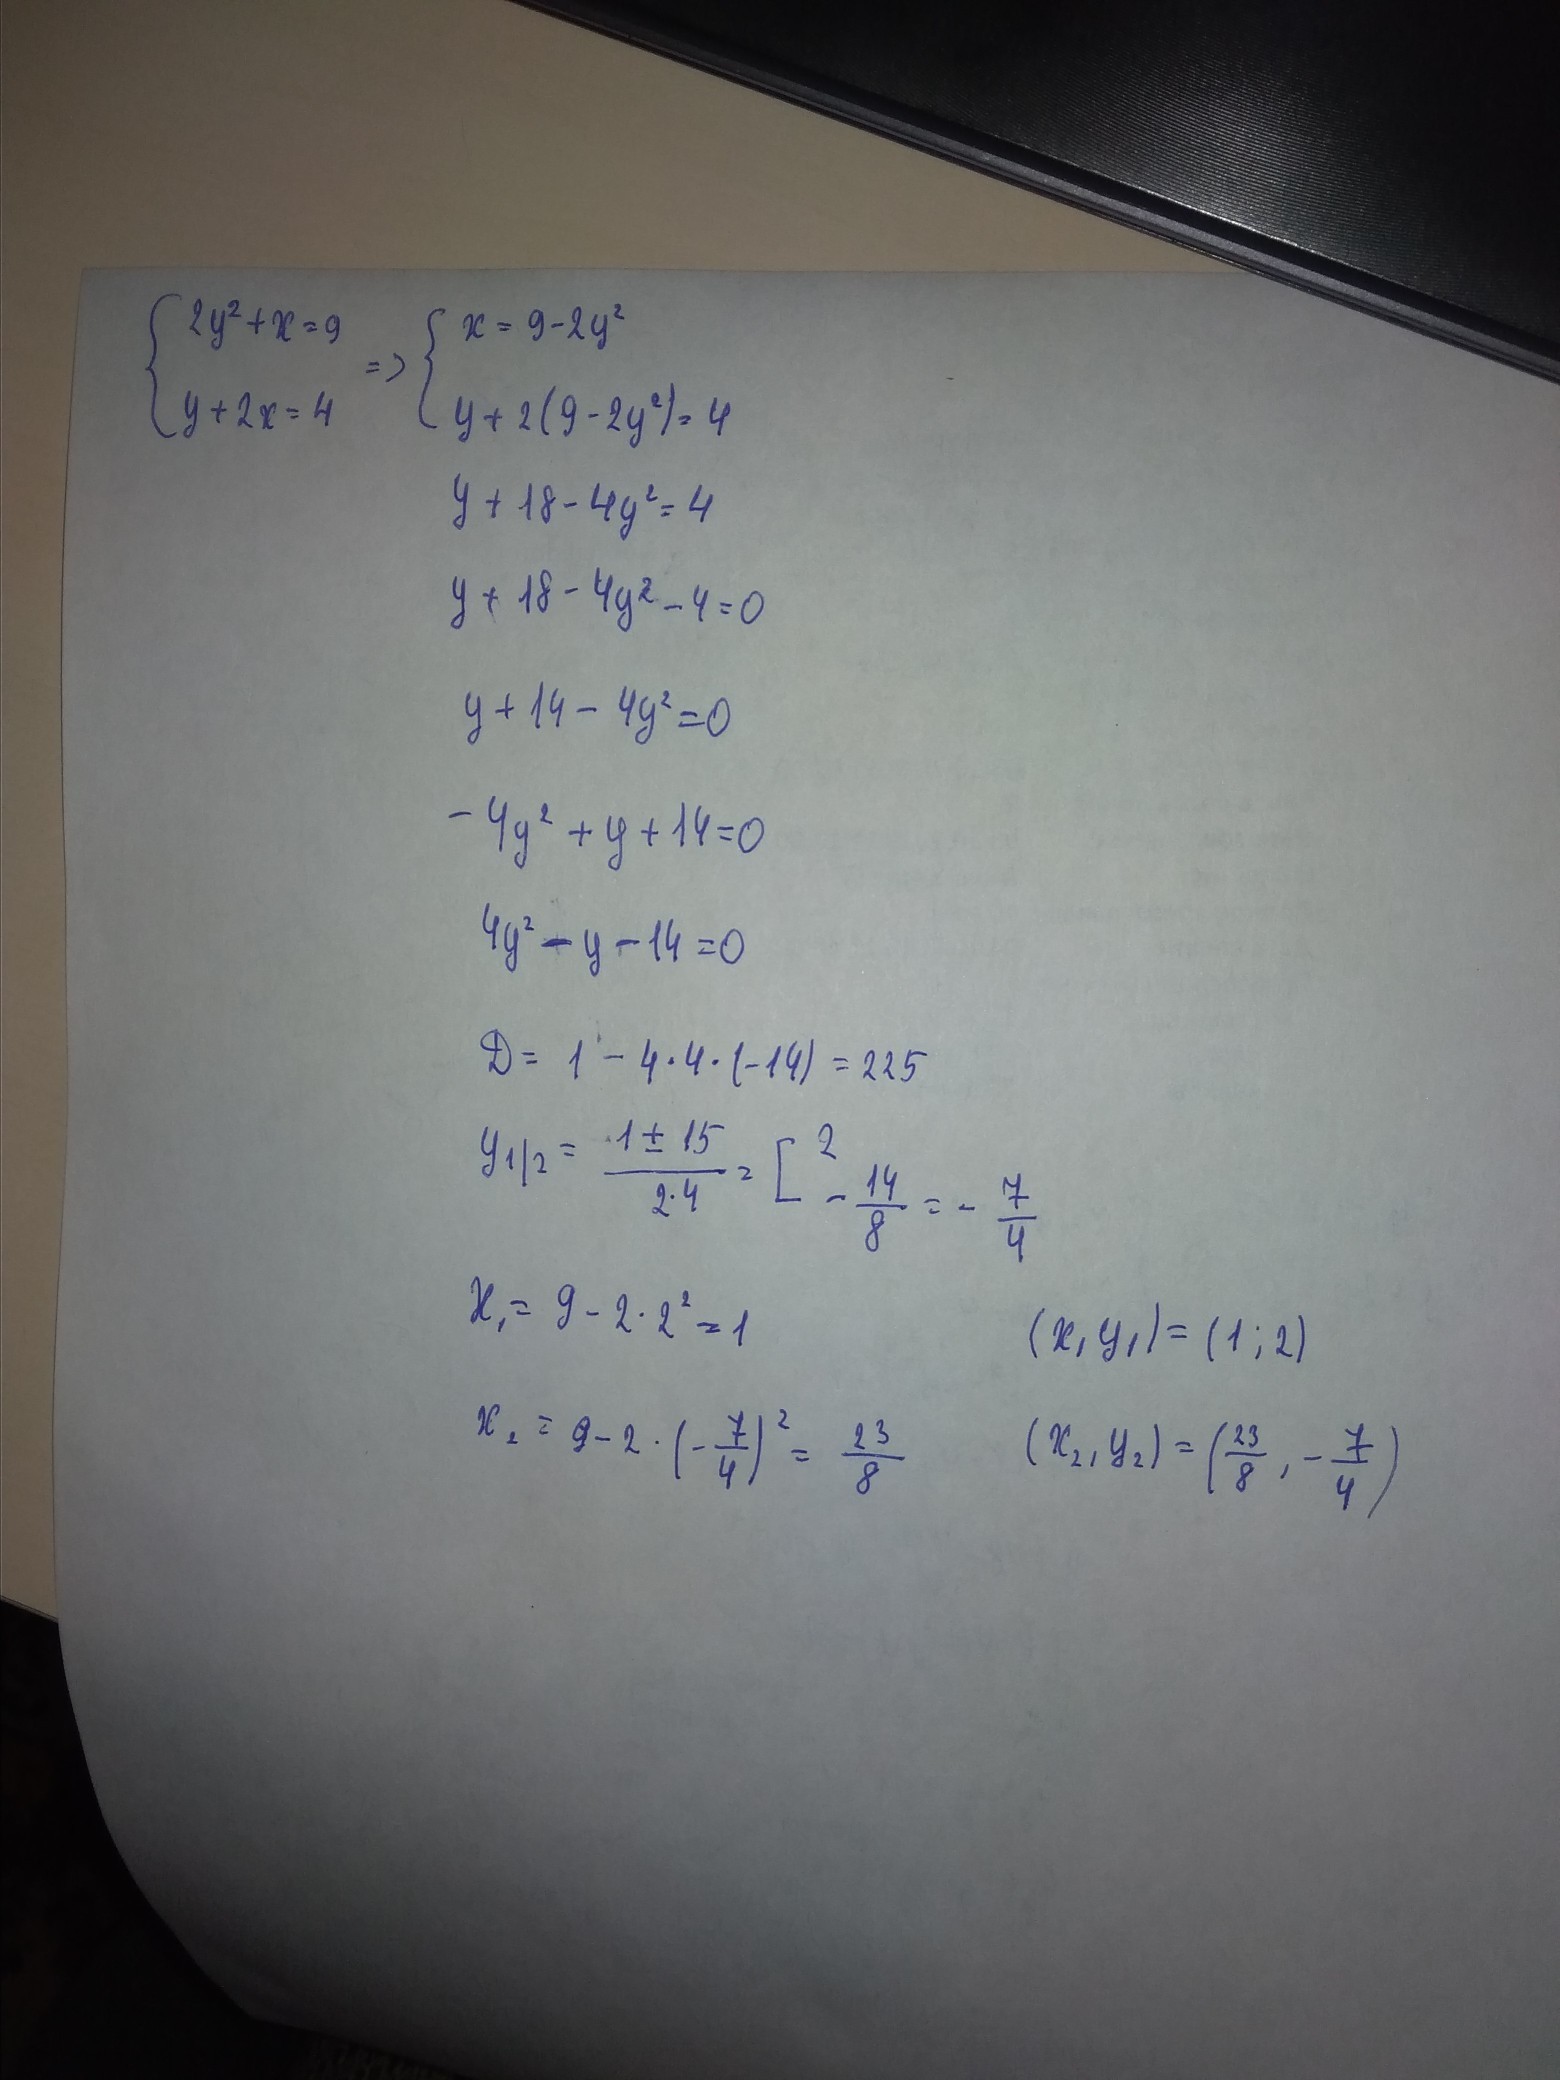 { 2y²+x=9 => { x = 9-2y²
y+2x=4 y+2(9-2y²)=4
y+18-4y²=4
y+18-4y²-4=0
y+14-4y²=0
-4y²+y+14=0
4y²-y-14=0
D= 1 - 4·4·(-14) = 225
y₁/₂ = (1±15)/(2·4) = [ 2 -14/8 = -7/4
x₁= 9-2·2²=1 (x₁ y₁)=(1;2)
x₂ = 9-2·(-7/4)² = 23/8 (x₂, y₂) = (23/8, -7/4)